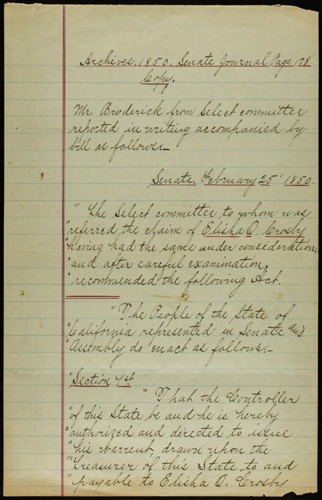 Archives. 1850. Senate Journal Page 128
Copy.
Mr. Broderick from Select committee
reported in writing accompanied by
bill as follows—
Senate, February 25' 1850.
"The Select committee to whom was
"referred the claim of Elisha O. Crosby
"having had the same under consideration,
"and after careful examination,
"recommended the following Act.
"The People of the State of
"California represented in Senate and
"Assembly do enact as follows:—
"Section 1st.
"That the Controller
"of this State be and he is hereby
"authorized and directed to issue
"his warrent, drawn upon the
"Treasurer of this State to and
"payable to Elisha O. Crosby